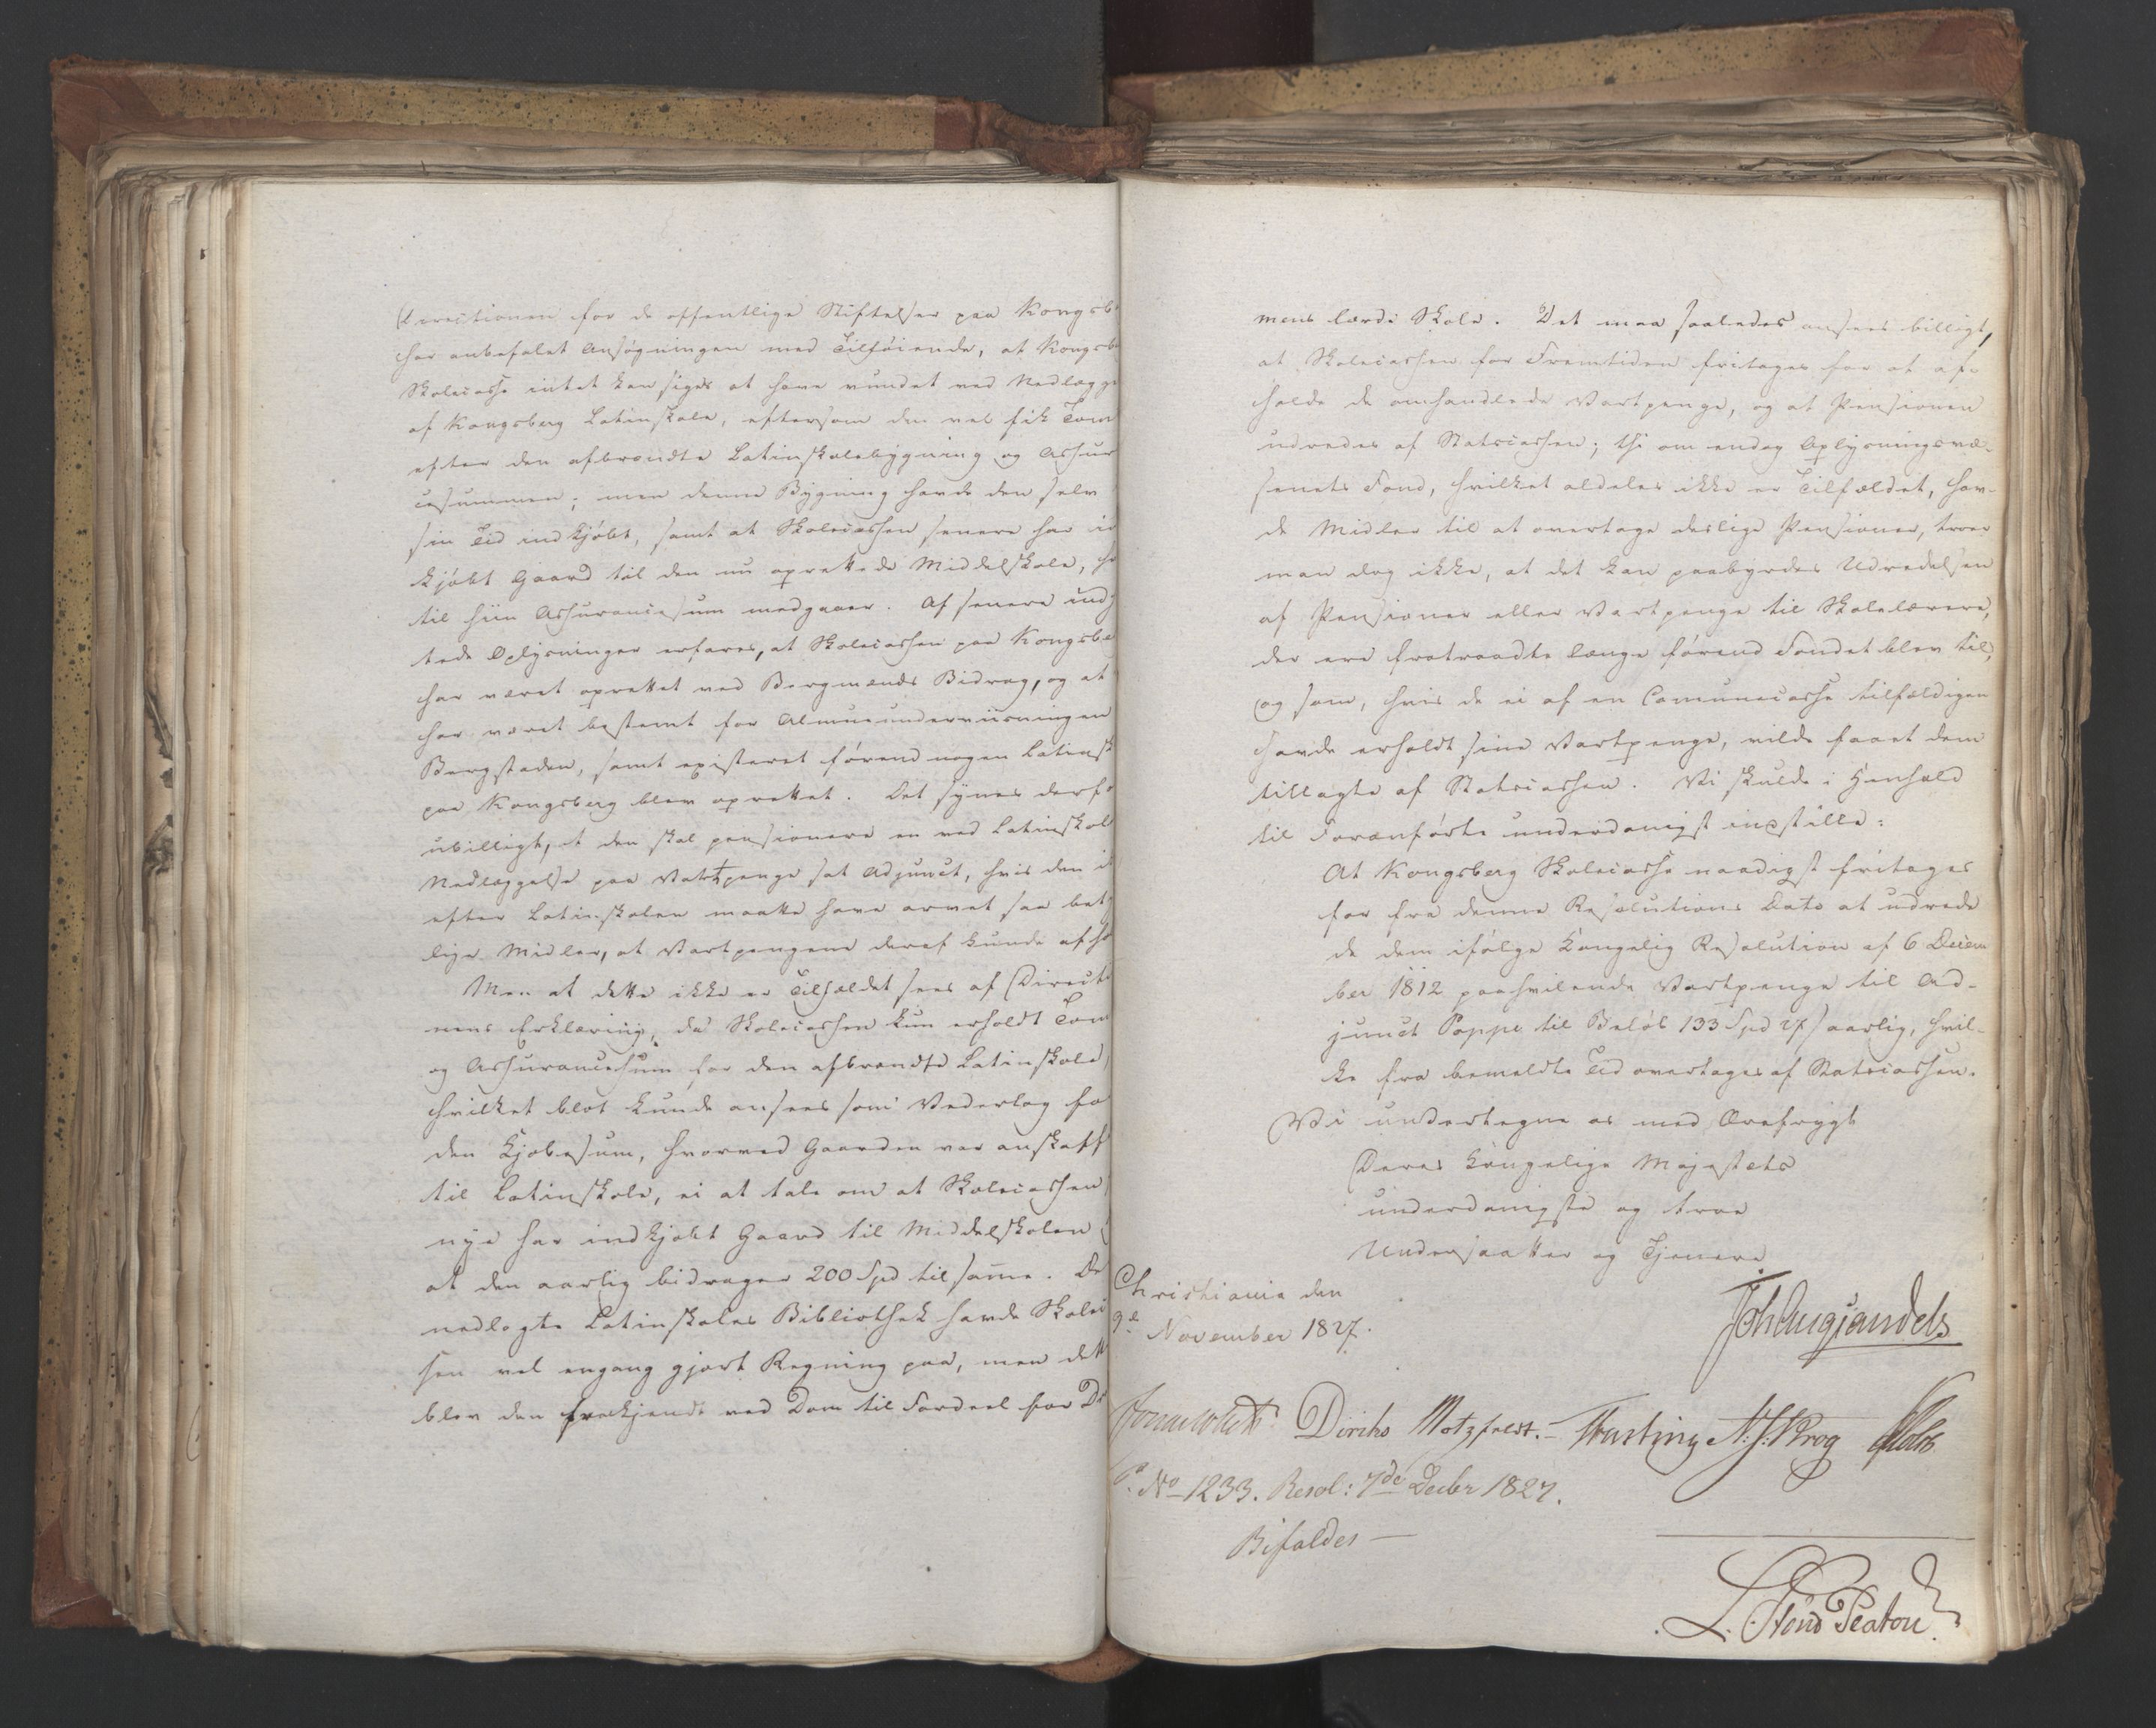 Directionen for de offentlige Stiftelser paa Kongsb
har anbefalet Ansøgningen med Tilføiende, at Kongsb
Skolecasse intet kan siges at have vundet ved Nedlægge
af Kongsberg Latinskole, eftersom den vel fik Tom
efter den afbrændte Latinskolebygning og Assur
cesummen; men denne Bygning havde den selv
sin Tid indkjøbt, samt at Skolecassen senere har in
kjøbt Gaard til den nu oprettede Middelskole, hv
til hiin Assurancesum medgaaer. Af senere indh
tede Oplysninger erfares, at Skolecassen paa Kongsbe
har været oprettet ved Bergmænds Bidrag, og at
har været bestemt for Almueunderviisningen
Bergstaden, samt existeret førend nogen Latinsk
paa Kongsberg blev oprettet. Det synes derfo
ubilligt, at den skal pensionere en ved Latinskol
Nedlæggelse paa Vartpenge sat Adjunct, hvis den i
efter Latinskolen maatte have arvet saa bety
lige Midler, at Vartpengene deraf kunde afho
Men at dette ikke er Tilfældet sees af Directi
nens Erklæring, da Skolecassen kun erholdt Tom
og Assurancesum for den afbrændte Latinskole,
hvilket blot kunde ansees som Vederlag fo
den Kjøbesum, hvorved Gaarden var anskaff
til Latinskole, ei at tale om at Skolecassen
nye har indkjøbt Gaard til Middelskolen
at den aarlig bidrager 200 Spd til samme. De
nedlagte Latinskoles Bibliothek havde Skolec
sen vel engang gjort Regning paa, men dett
blev den frakjendt ved Dom til Fordeel for Dr
mens lærde Skole. Det maa saaledes ansees billigt,
at Skolecassen for Fremtiden fritages for at af-
holde de omhandlede Vartpenge, og at Pensionen
udredes af Statscassen; thi om endog Oplysningsvæ-
senets Fond, hvilket aldeles ikke er Tilfældet, hav-
de Midler til at overtage deslige Pensioner, troer
man dog ikke, at det kan paabyrdes Udredelsen
af Pensioner eller Vartpenge til Skolelærere,
der ere fratraadte længe førend Fondet blev til,
og som, hvis de ei af en Communecasse tilfældigen
havde erholdt sine Vartpenge, vilde faaet dem
tillagte af Statscassen. Vi skulde i Henhold
til Foranførte underdanigst indstille:
At Kongsberg Skolecasse naadigst fritages
for fra denne Resolutions Dato at udrede
de dem ifølge Kongelig Resolution af 6 Decem
ber 1812 paahvilende Vartpenge til Ad-
junct Poppe til Beløb 133 Spd 2f s aarlig, hvil-
ke fra bemeldte Tid overtages af Statscassen.
Vi undertegne os med Ærefrygt
Deres Kongelige Majestæts
underdanigste og troe
Undersaatter og Tjenere
Christiania den
9de November 1827.
Joh Aug Sandels
Jonas Collett Diriks Motzfeldt. Fasting N. J. Krog Holst
P. No 1233. Resol: 7de Decbr 1827.
Bifaldes